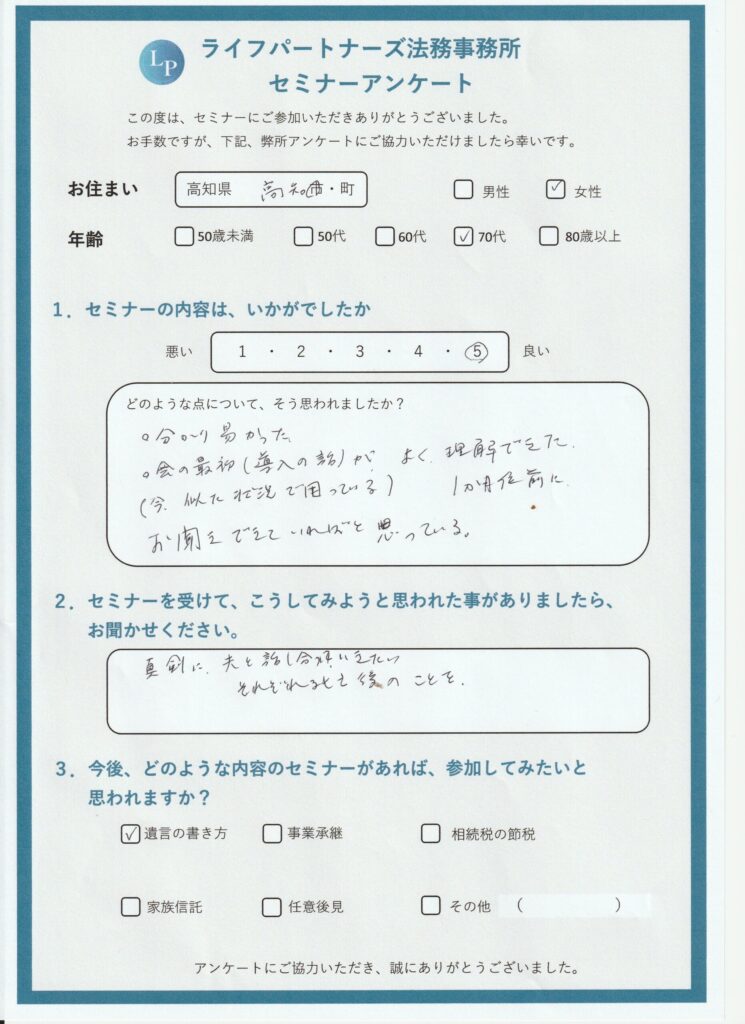 LP
ライフパートナーズ法務事務所
セミナーアンケート
この度は、セミナーにご参加いただきありがとうございました。
お手数ですが、下記、弊所アンケートにご協力いただけましたら幸いです。
お住まい 高知県 高知市・町 男性 ✓ 女性
年齢 50歳未満 50代 60代 ✓ 70代 80歳以上
1．セミナーの内容は、いかがでしたか
悪い 1 ・ 2 ・ 3 ・ 4 ・ 5 良い
どのような点について、そう思われましたか？
○分かり易かった
○会の最初(導入の話)が、よく理解できた.
(今、似た状況で困っている) 1か月位前に
お聞きできていればと思っている。
2．セミナーを受けて、こうしてみようと思われた事がありましたら、
お聞かせください。
真剣に、夫と話し合いたい
それぞれ 後のことを.
3．今後、どのような内容のセミナーがあれば、参加してみたいと
思われますか？
✓ 遺言の書き方 事業承継 相続税の節税
家族信託 任意後見 その他 （ ）
アンケートにご協力いただき、誠にありがとうございました。